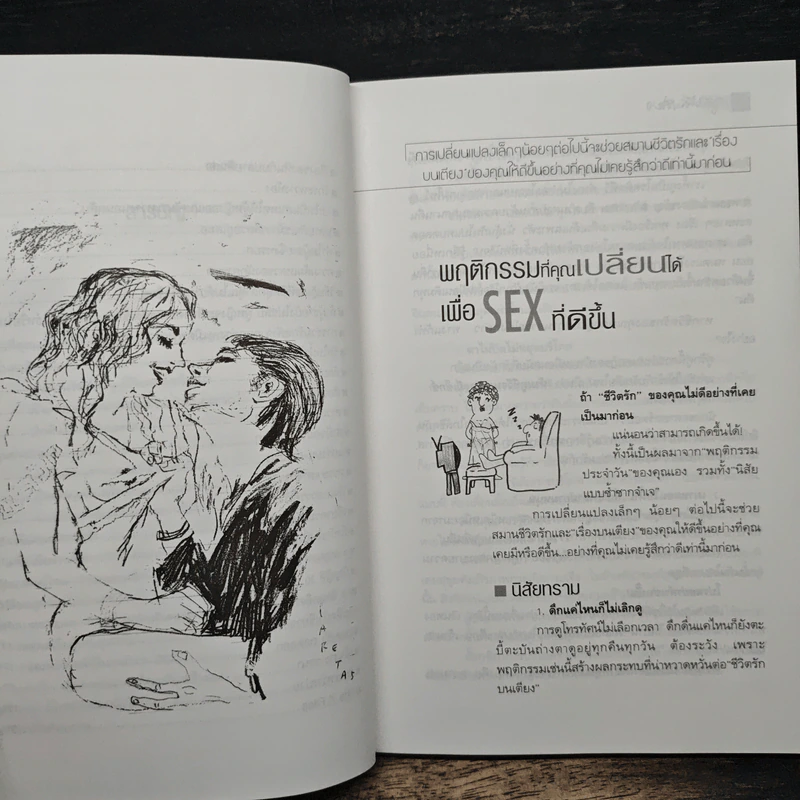 การเปลี่ยนแปลงเล็กๆน้อยๆต่อไปนี้จะช่วยสมานชีวิตรักและ'เรื่อง
บนเตียง'ของคุณให้ดีขึ้นอย่างที่คุณไม่เคยรู้สึกว่าดีเท่านี้มาก่อน
พฤติกรรมที่คุณเปลี่ยนได้
เพื่อ SEX ที่ดีขึ้น
ถ้า "ชีวิตรัก" ของคุณไม่ดีอย่างที่เคย
เป็นมาก่อน
แน่นอนว่าสามารถเกิดขึ้นได้!
ทั้งนี้เป็นผลมาจาก"พฤติกรรม
ประจำวัน"ของคุณเอง รวมทั้ง"นิสัย
แบบซ้ำซากจำเจ"
การเปลี่ยนแปลงเล็กๆ น้อยๆ ต่อไปนี้จะช่วย
สมานชีวิตรักและ"เรื่องบนเตียง"ของคุณให้ดีขึ้นอย่างที่คุณ
เคยมีหรือดีขึ้น...อย่างที่คุณไม่เคยรู้สึกว่าดีเท่านี้มาก่อน
■ นิสัยทราม
1. ดึกแค่ไหนก็ไม่เลิกดู
การดูโทรทัศน์ไม่เลือกเวลา ดึกดื่นแค่ไหนก็ยังตะ
บี้ตะบันถ่างตาดูอยู่ทุกคืนทุกวัน ต้องระวัง เพราะ
พฤติกรรมเช่นนี้สร้างผลกระทบที่น่าหวาดหวั่นต่อ"ชีวิตรัก
บนเตียง"